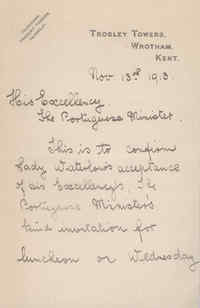 TROSLEY TOWERS,
WROTHAM,
KENT.
Nov. 13th 1913.
His Excellency.
The Portuguese Minister.
This is to confirm
Lady Waterlow's acceptance
of his Excellency's, The
Portuguese Minister's
kind invitation for
luncheon on Wednesday